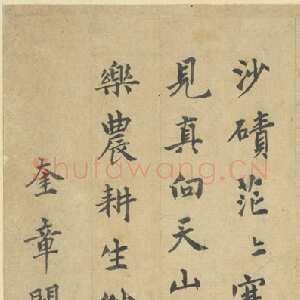 沙磧茫〻寒
見真向天山
樂農耕生
奎章閣
Shufawang.CN